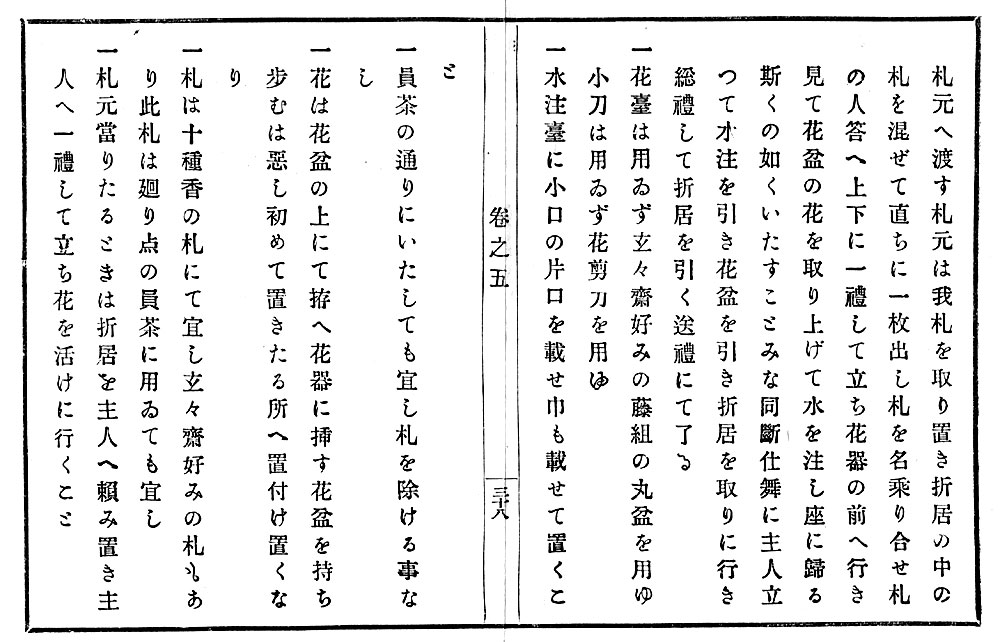 札元へ渡す札元は我札を取り置き折居の中の
札を混ぜて直ちに一枚出し札を名乘り合せ札
の人答へ上下に一禮して立ち花器の前へ行き
見て花盆の花を取り上げて水を注し座に歸る
斯くの如くいたすことみな同斷仕舞に主人立
つて水注を引き花盆を引き折居を取りに行き
總禮して折居を引く送禮にて了る
一花臺は用ゐず玄々齋好みの藤組の丸盆を用ゆ
小刀は用ゐず花剪刀を用ゆ
一水注臺に小口の片口を載せ巾も載せて置くこ
卷之五
三十八
と
一員茶の通りにいたしても宜し札を除ける事な
し
一花は花盆の上にて拵へ花器に揷す花盆を持ち
步むは惡し初めて置きたる所へ置付け置くな
り
一札は十種香の札にて宜し玄々齋好みの札もあ
り此札は廻り点の員茶に用ゐても宜し
一札元當りたるときは折居を主人へ賴み置き主
人へ一禮して立ち花を活けに行くこと